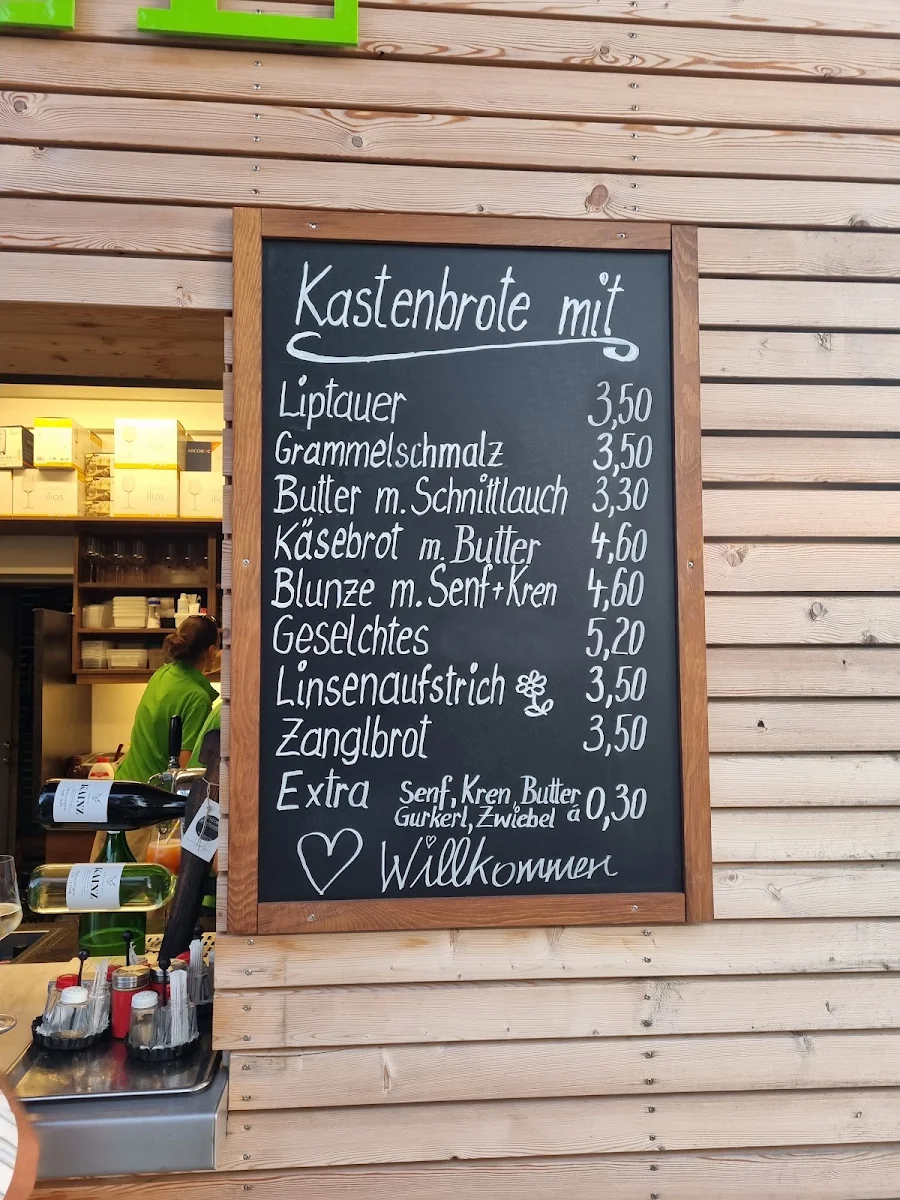 Kastenbrote mit
Liptauer 3,50
Grammelschmalz 3,50
Butter m. Schnittlauch 3,30
Käsebrot m. Butter 4,60
Blunze m. Senf+Kren 4,60
Geselchtes 5,20
Linsenaufstrich 3,50
Zanglbrot 3,50
Extra Senf, Kren, Butter
Gurkerl, Zwiebel á 0,30
Willkommen
ilios
ilios
KAINZ
KAINZ